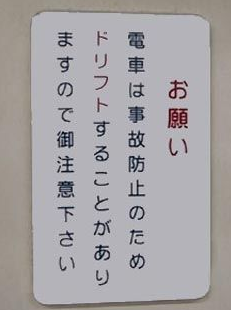 お願い
電車は事故防止のため
ドリフトすることがあり
ますので御注意下さい